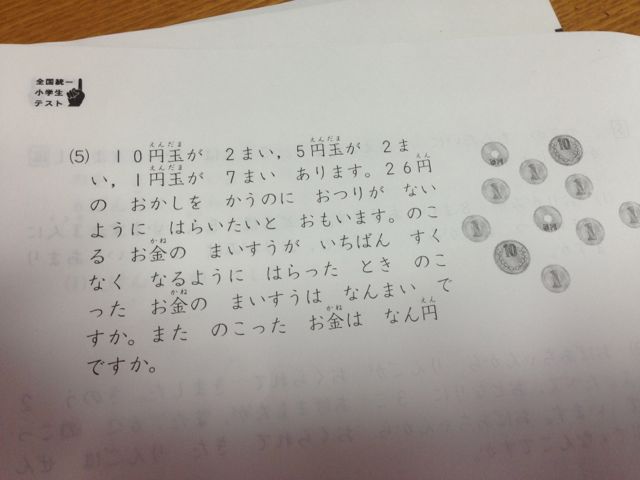 全国統一
小学生
テスト
(5) 10円玉が 2まい，5円玉が 2ま
い，1円玉が 7まい あります。26円
の おかしを かうのに おつりが ない
ように はらいたいと おもいます。のこ
る お金の まいすうが いちばん すく
なく なるように はらった とき のこ
った お金の まいすうは なんまい で
すか。また のこった お金は なん円
ですか。
10
10